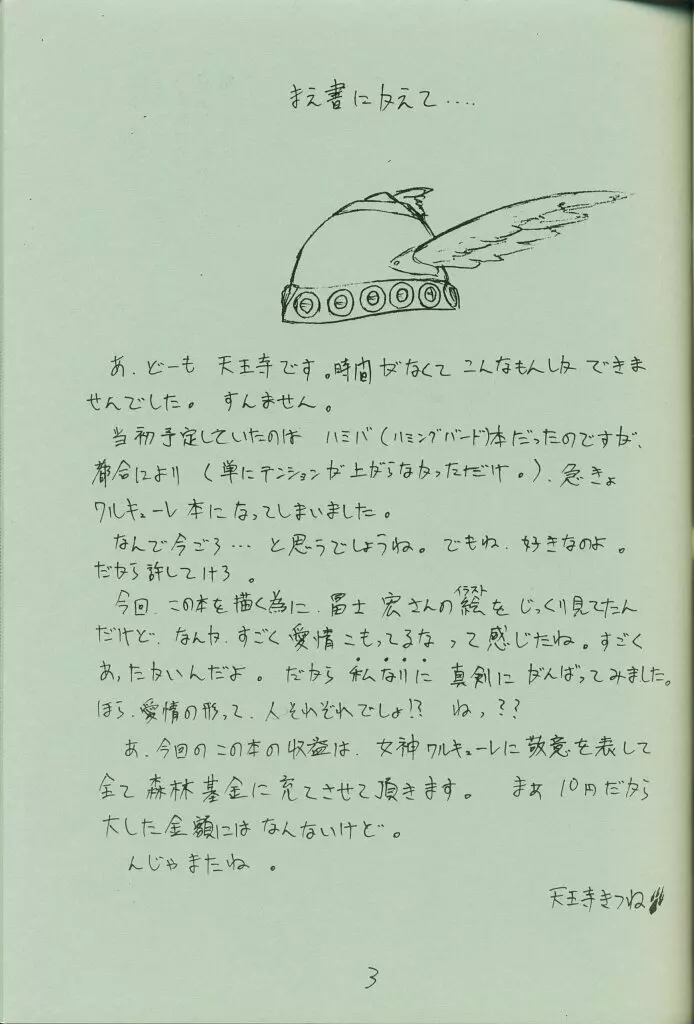 まえ書に加えて‥‥
あ、どーも 天王寺です。時間がなくて こんなもんしか できま
せんでした。 すんません。
当初予定していたのは ハミバ(ハミングバード)本だったのですが、
都合により (単にテンションが上がらなかっただけ。)、急きょ
ワルキューレ本になってしまいました。
なんで今ごろ… と思うでしょうね。でもね、好きなのよ。
だから許してけろ。
今回、この本を描く為に、冨士 宏さんの絵をじっくり見てたん
イラスト
だけど、なんか、すごく 愛情こもってるな って感じたね。すごく
あったかいんだよ。 だから 私なりに 真剣に がんばってみました。
ほら、愛情の形って、人それぞれでしょ!? ねっ??
あ、今回の この本の収益は、女神ワルキューレに敬意を表して
全て 森林基金に充てさせて頂きます。 まあ 10円だから
大した金額にはなんないけど。
んじゃまたね 。
天王寺きつね
3